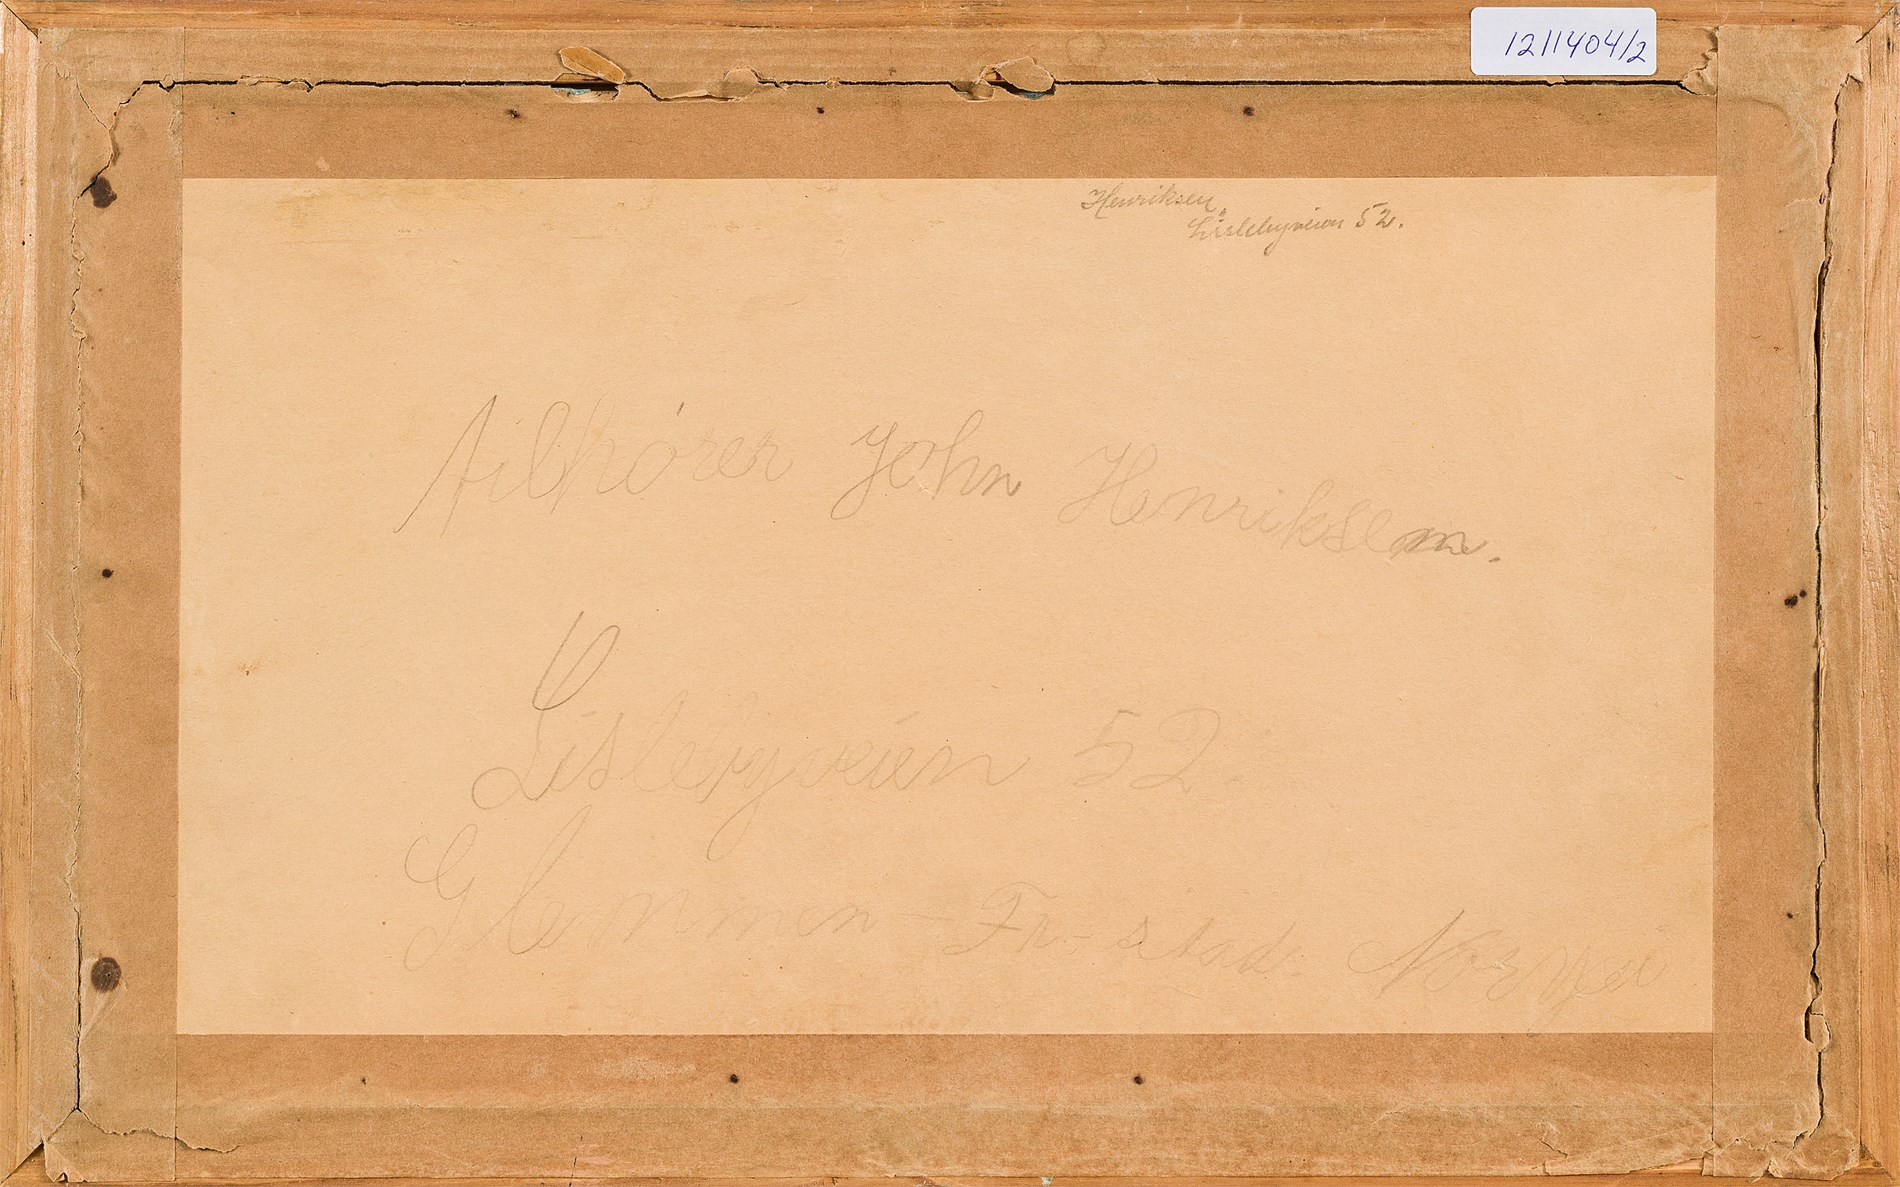 1211404/2
Henriksen,
Lislebyveien 52.
tilhører John Henriksen.
Lislebyveien 52
Glemmen - Fr-stad. Norge